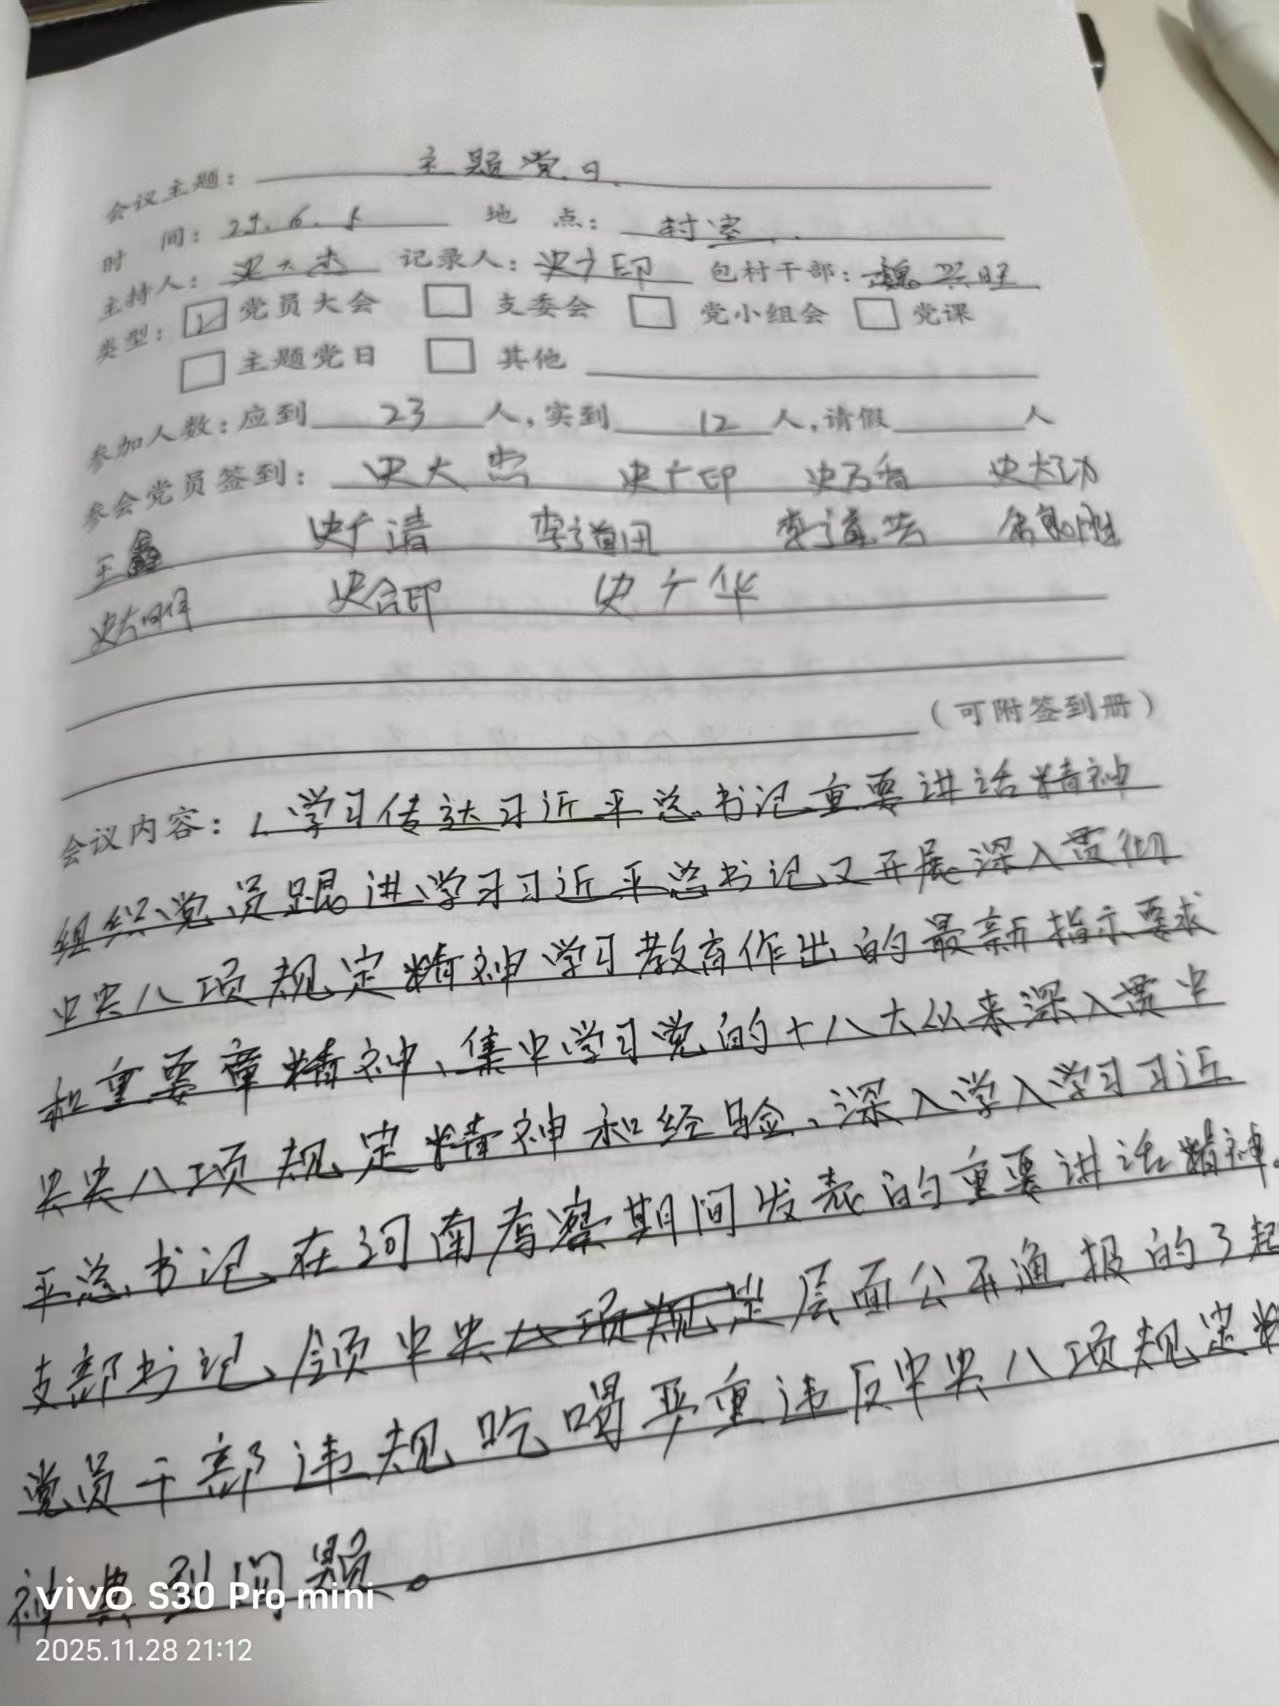 会议主题：主题党日
时 间：25.6.5 地 点：村室
主持人：史大杰 记录人：史广印 包村干部：魏兴旺
类型：☑党员大会 □支委会 □党小组会 □党课
□主题党日 □其他
参加人数：应到 23 人，实到 12 人，请假 人
参会党员签到：史大杰 史广印 史万香 史大功
王鑫 史广清 李道田 李道芸
史大明 史合印 史广华
（可附签到册）
会议内容：1.学习传达习近平总书记重要讲话精神
组织党员跟进学习习近平总书记又开展深入贯彻
中央八项规定精神学习教育作出的最新指示要求
和重要章精神、集中学习党的十八大以来深入贯中
央央八项规定精神和经验、深入学入学习习近
平总书记在河南考察期间发表的重要讲话精神。
支部书记、领中央八项规定层面公开通报的了起
党员干部违规吃喝严重违反中央八项规定精
神典型问题。
vivo S30 Pro mini
2025.11.28 21:12